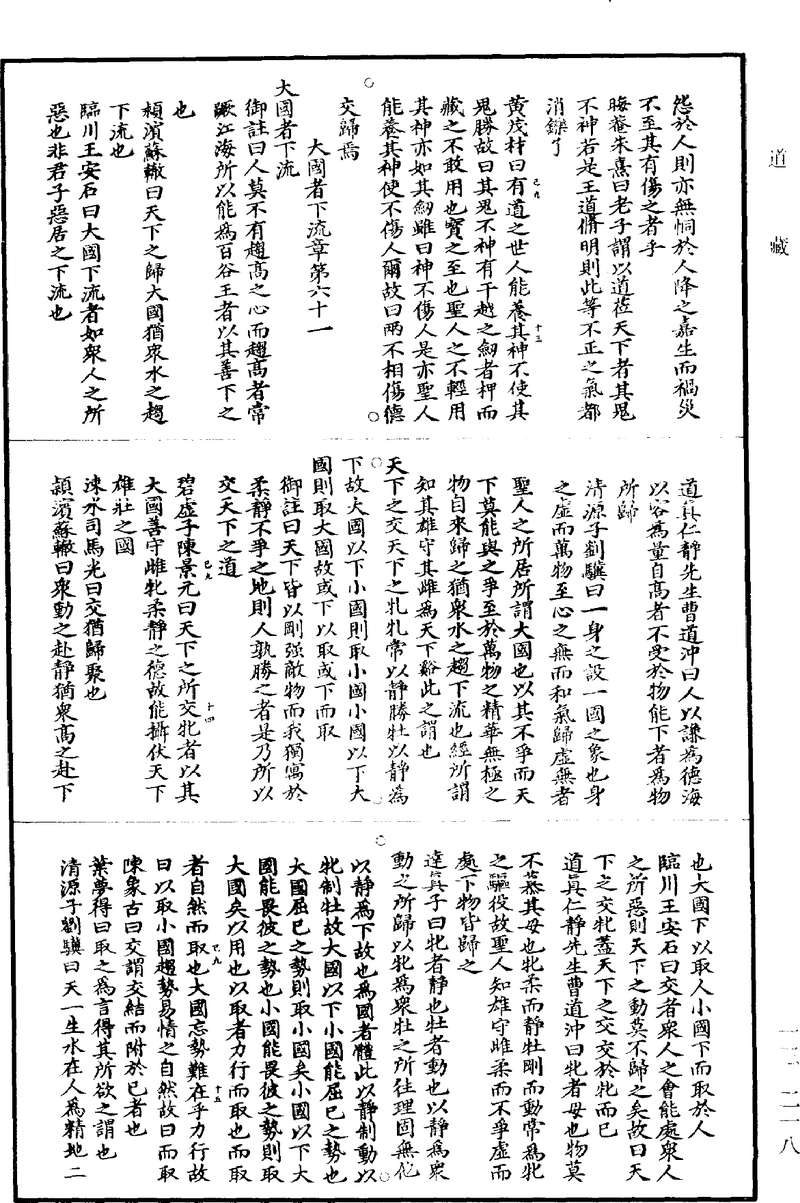 道藏
怨於人則亦無恫於人降之嘉生而禍災
不至其有傷之者乎
晦菴朱熹曰老子謂以道莅天下者其鬼
不神若是王道脩明則此等不正之氣都
消鑠了
黃茂材曰有道之世人能養其神不使其
鬼勝故曰其鬼不神有干越之劒者柙而
藏之不敢用也寳之至也聖人之不輕用
其神亦如其劒雖曰神不傷人是亦聖人
能養其神使不傷人爾故曰兩不相傷德
交歸焉
大國者下流章第六十一
大國者下流
御註曰人莫不有趨高之心而趨高者常
蹶江海所以能為百谷王者以其善下之
也
潁濱蘇轍曰天下之歸大國猶衆水之趨
下流也
臨川王安石曰大國下流者如衆人之所
惡也非君子惡居之下流也
道真仁靜先生曹道沖曰人以謙為德海
以容為量自高者不受於物能下者為物
所歸
清源子劉驥曰一身之設一國之象也身
之虛而萬物至心之無而和氣歸虛無者
聖人之所居所謂大國也以其不爭而天
下莫能與之爭至於萬物之精華無極之
物自來歸之猶衆水之趨下流也經所謂
知其雄守其雌為天下谿此之謂也
天下之交天下之牝牝常以靜勝牡以靜為
下故大國以下小國則取小國小國以下大
國則取大國故或下以取或下而取
御註曰天下皆以剛強敵物而我獨寓於
柔靜不爭之地則人孰勝之者是乃所以
交天下之道
碧虛子陳景元曰天下之所交牝者以其
大國善守雌牝柔靜之德故能攝伏天下
雄壯之國
涑水司馬光曰交猶歸聚也
潁濱蘇轍曰衆動之赴靜猶衆高之赴下
也大國下以取人小國下而取於人
臨川王安石曰交者衆人之會能處衆人
之所惡則天下之動莫不歸之矣故曰天
下之交牝蓋天下之交交於牝而已
道真仁靜先生曹道沖曰牝者母也物莫
不慕其母也牝柔而靜牡剛而動常為牝
之驅役故聖人知雄守雌柔而不爭虛而
處下物皆歸之
達真子曰牝者靜也牡者動也以靜為衆
動之所歸以牝為衆牡之所往理固無他
以靜為下故也為國者體此以靜制動以
牝制牡故大國以下小國能屈已之勢也
大國屈已之勢則取小國矣小國以下大
國能畏彼之勢也小國能畏彼之勢則取
大國矣以用也以取者力行而取也而取
者自然而取也大國忘勢難在乎力行故
曰以取小國趨勢易情之自然故曰而取
陳象古曰交謂交結而附於已者也
葉夢得曰取之為言得其所欲之謂也
清源子劉驥曰天一生水在人為精地二
一二·二一八
已九
十三
已九
十四
已九
十五